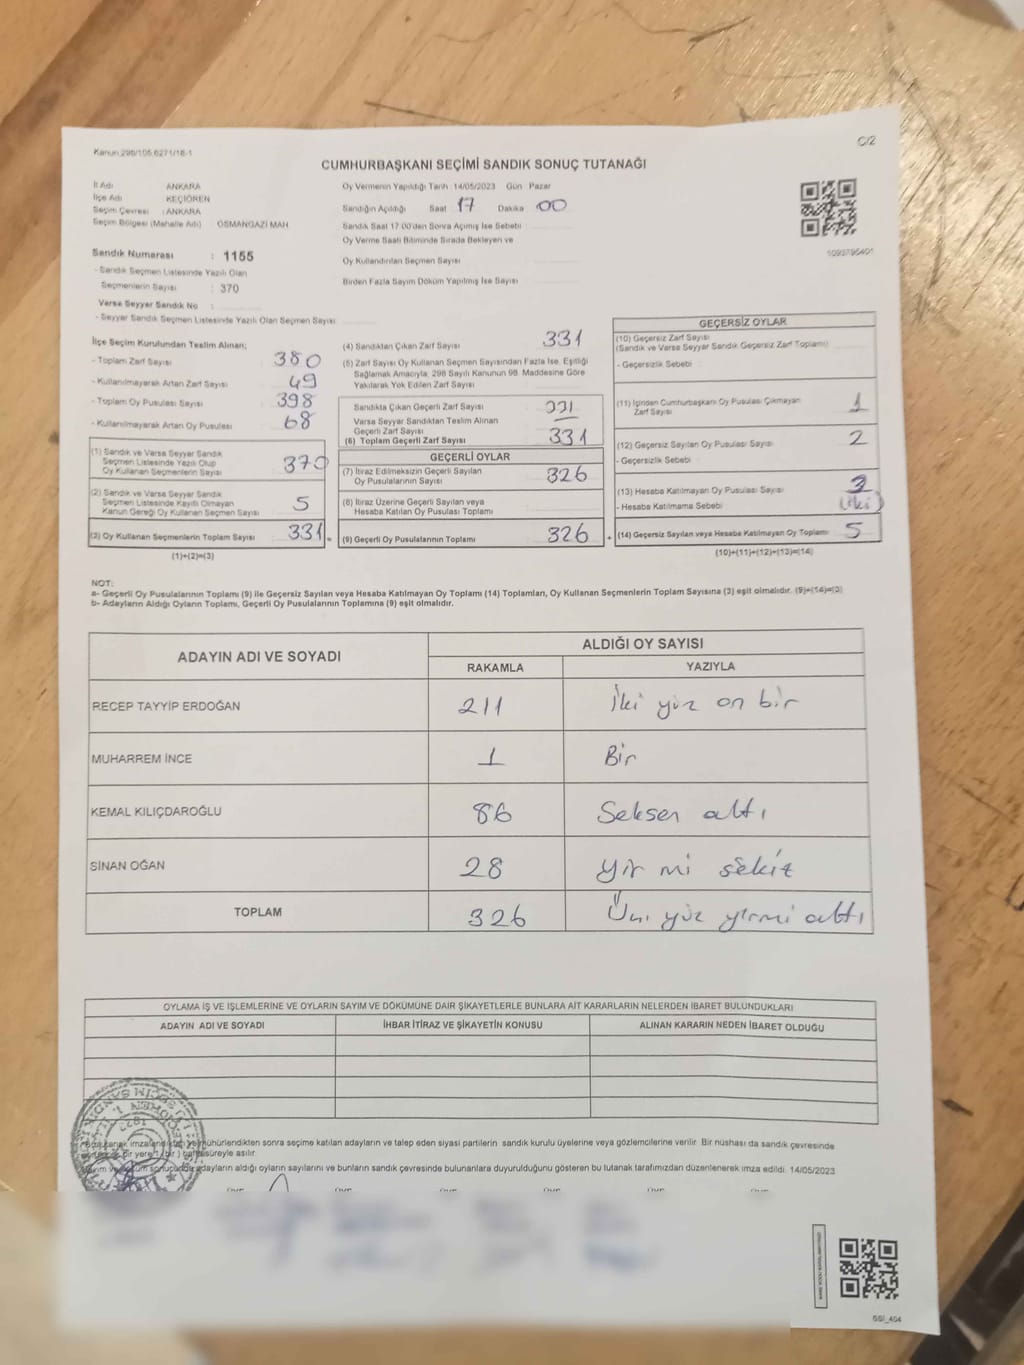 C/2
Kanun:298/105,6271/18-1
CUMHURBAŞKANI SEÇİMİ SANDIK SONUÇ TUTANAĞI
İl Adı ANKARA
İlçe Adı KEÇİÖREN
Seçim Çevresi : ANKARA
Seçim Bölgesi (Mahalle Adı) OSMANGAZİ MAH.
Oy Vermenin Yapıldığı Tarih 14/05/2023 Gün Pazar
Sandığın Açıldığı Saat 17 Dakika 00
Sandık Saat 17.00'den Sonra Açılmış İse Sebebi
Oy Verme Saati Bitiminde Sırada Bekleyen ve
Oy Kullandırılan Seçmen Sayısı
Birden Fazla Sayım Döküm Yapılmış İse Sayısı
1093795401
Sandık Numarası : 1155
- Sandık Seçmen Listesinde Yazılı Olan
Seçmenlerin Sayısı : 370
Varsa Seyyar Sandık No :
- Seyyar Sandık Seçmen Listesinde Yazılı Olan Seçmen Sayısı
İlçe Seçim Kurulundan Teslim Alınan;
- Toplam Zarf Sayısı 380
- Kullanılmayarak Artan Zarf Sayısı 49
- Toplam Oy Pusulası Sayısı 398
- Kullanılmayarak Artan Oy Pusulası 68
(1) Sandık ve Varsa Seyyar Sandık
Seçmen Listesinde Yazılı Olup
Oy Kullanan Seçmenlerin Sayısı 370
(2) Sandık ve Varsa Seyyar Sandık
Seçmen Listesinde Kayıtlı Olmayan
Kanun Gereği Oy Kullanan Seçmen Sayısı 5
(3) Oy Kullanan Seçmenlerin Toplam Sayısı 331 =
(1)+(2)=(3)
(4) Sandıktan Çıkan Zarf Sayısı 331
(5) Zarf Sayısı Oy Kullanan Seçmen Sayısından Fazla İse, Eşitliği
Sağlamak Amacıyla, 298 Sayılı Kanunun 98. Maddesine Göre
Yakılarak Yok Edilen Zarf Sayısı
Sandıkta Çıkan Geçerli Zarf Sayısı 331
Varsa Seyyar Sandıktan Teslim Alınan
Geçerli Zarf Sayısı
(6) Toplam Geçerli Zarf Sayısı 331
GEÇERLİ OYLAR
(7) İtiraz Edilmeksizin Geçerli Sayılan
Oy Pusulalarının Sayısı 326
(8) İtiraz Üzerine Geçerli Sayılan veya
Hesaba Katılan Oy Pusulası Toplamı
(9) Geçerli Oy Pusulalarının Toplamı 326 +
GEÇERSİZ OYLAR
(10) Geçersiz Zarf Sayısı
(Sandık ve Varsa Seyyar Sandık Geçersiz Zarf Toplamı)
- Geçersizlik Sebebi
(11) İçinden Cumhurbaşkanı Oy Pusulası Çıkmayan
Zarf Sayısı 1
(12) Geçersiz Sayılan Oy Pusulası Sayısı 2
- Geçersizlik Sebebi
(13) Hesaba Katılmayan Oy Pusulası Sayısı
- Hesaba Katılmama Sebebi (iki)
(14) Geçersiz Sayılan veya Hesaba Katılmayan Oy Toplamı 5
(10)+(11)+(12)+(13)=(14)
NOT:
a- Geçerli Oy Pusulalarının Toplamı (9) ile Geçersiz Sayılan veya Hesaba Katılmayan Oy Toplamı (14) Toplamları, Oy Kullanan Seçmenlerin Toplam Sayısına (3) eşit olmalıdır. (9)+(14)=(3)
b- Adayların Aldığı Oyların Toplamı, Geçerli Oy Pusulalarının Toplamına (9) eşit olmalıdır.
ADAYIN ADI VE SOYADI
ALDIĞI OY SAYISI
RAKAMLA YAZIYLA
RECEP TAYYİP ERDOĞAN 211 İki yüz on bir
MUHARREM İNCE 1 Bir
KEMAL KILIÇDAROĞLU 86 Seksen altı
SİNAN OĞAN 28 Yirmi sekiz
TOPLAM 326 Üç yüz yirmi altı
OYLAMA İŞ VE İŞLEMLERİNE VE OYLARIN SAYIM VE DÖKÜMÜNE DAİR ŞİKAYETLERLE BUNLARA AİT KARARLARIN NELERDEN İBARET BULUNDUKLARI
ADAYIN ADI VE SOYADI İHBAR İTİRAZ VE ŞİKAYETİN KONUSU ALINAN KARARIN NEDEN İBARET OLDUĞU
mühürlendikten sonra seçime katılan adayların ve talep eden siyasi partilerin sandık kurulu üyelerine veya gözlemcilerine verilir. Bir nüshası da sandık çevresinde
bir yere 1 (bir) hafta süreyle asılır.
adayların aldığı oyların sayılarını ve bunların sandık çevresinde bulunanlara duyurulduğunu gösteren bu tutanak tarafımızdan düzenlenerek imza edildi. 14/05/2023
GSI_404